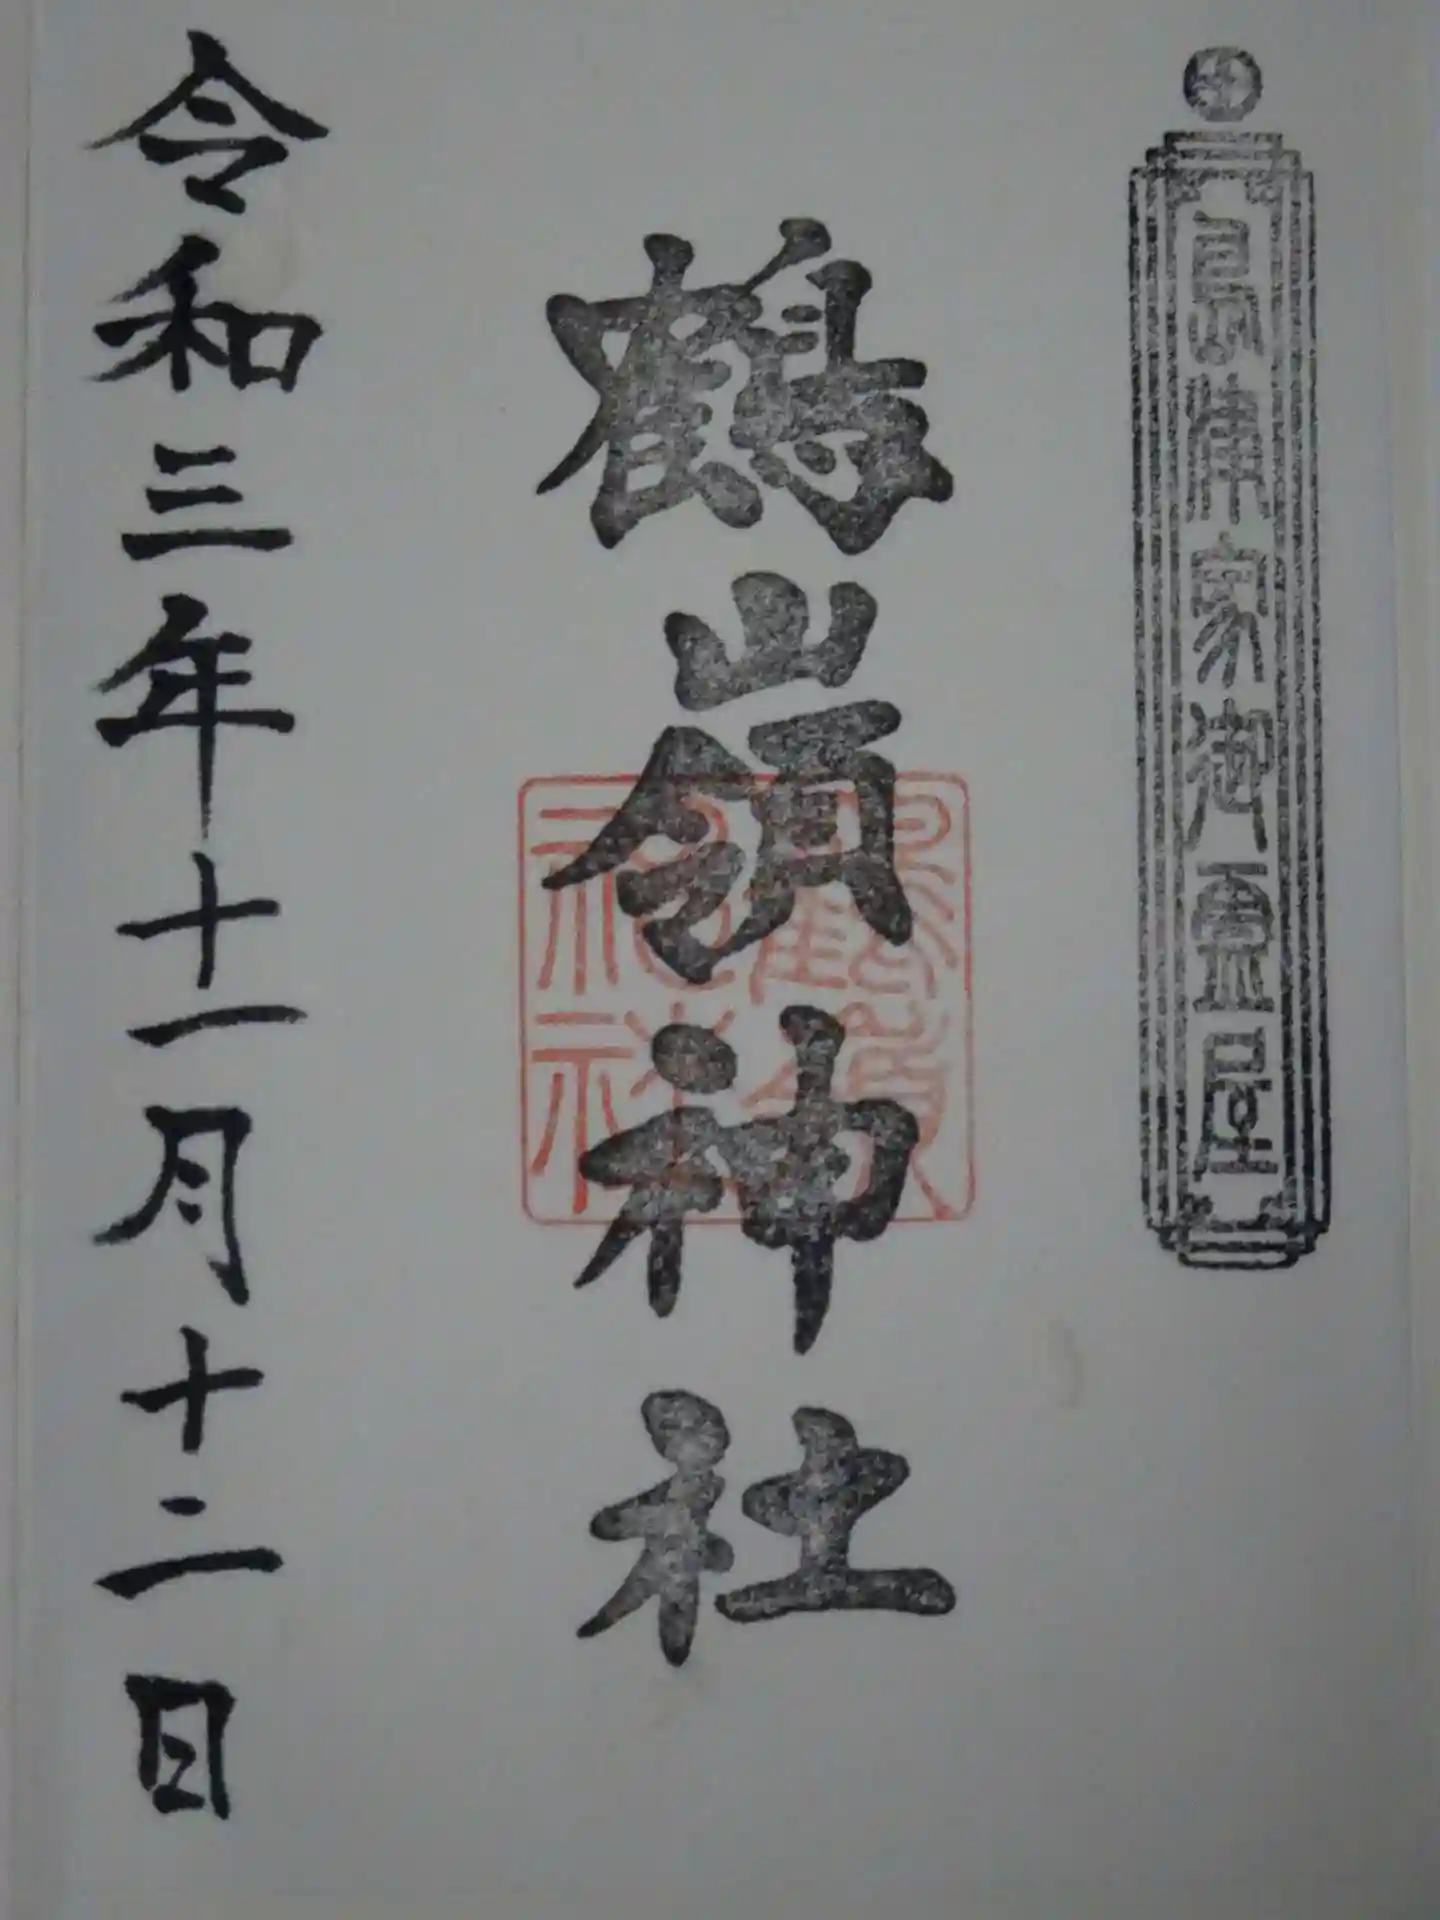 島津家御霊屋
鶴嶺神社
令和三年十一月十二日